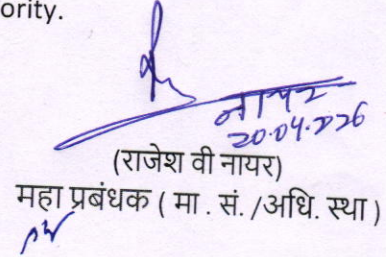 ority.
नायर
20.04.2026
(राजेश वी नायर)
महा प्रबंधक ( मा . सं. /अधि. स्था )